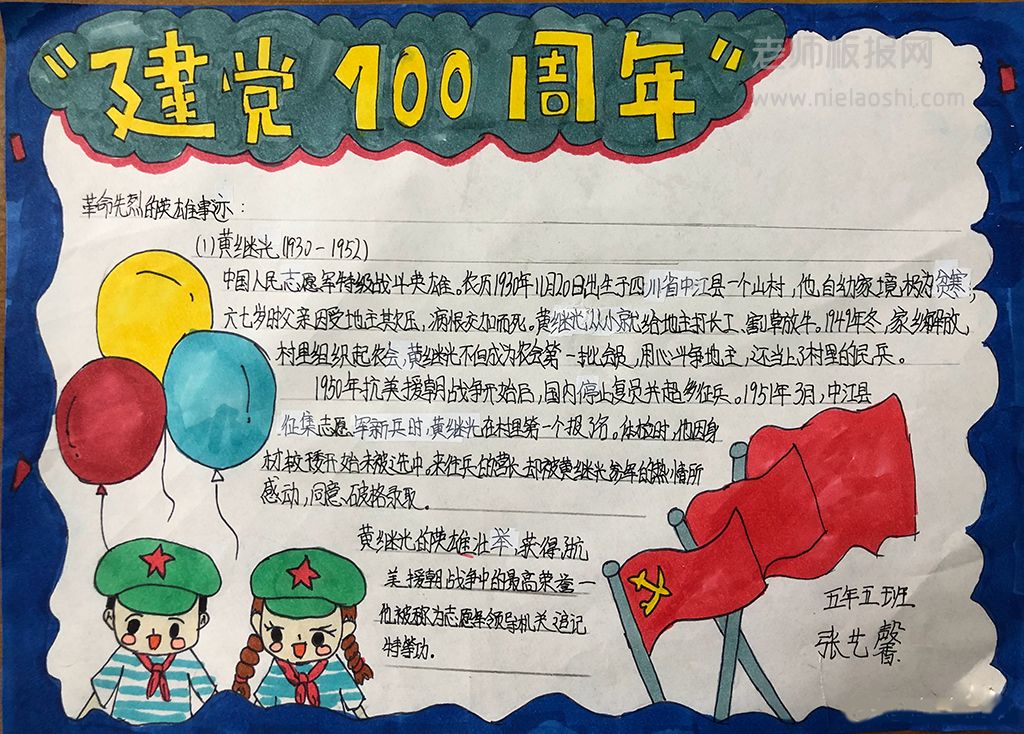 “建党100周年”
老师板报网
www.nielaoshi.com
革命先烈的英雄事迹:
(1)黄继光(1930-1952)
中国人民志愿军特级战斗英雄。农历1930年11月20日出生于四川省中江县一个山村,他自幼家境极为贫寒,
六七岁时父亲因受地主欺压,病恨交加而死。黄继光从小就给地主打长工、割草放牛。1949年冬,家乡解放,
村里组织起农会,黄继光不但成为农会第一批会员,用心斗争地主,还当上了村里的民兵。
1950年抗美援朝战争开始后,国内停止复员并超乡征兵。1951年3月,中江县
征集志愿军新兵时,黄继光在村里第一个报了名。体检时,他因身
材较矮开始未被选中。来征兵的营长却被黄继光参军的热情所
感动,同意破格录取。
黄继光的英雄壮举,获得抗
美援朝战争中的最高荣誉一
他被称为志愿军领导机关追记
特等功.
五年五班
张艺馨